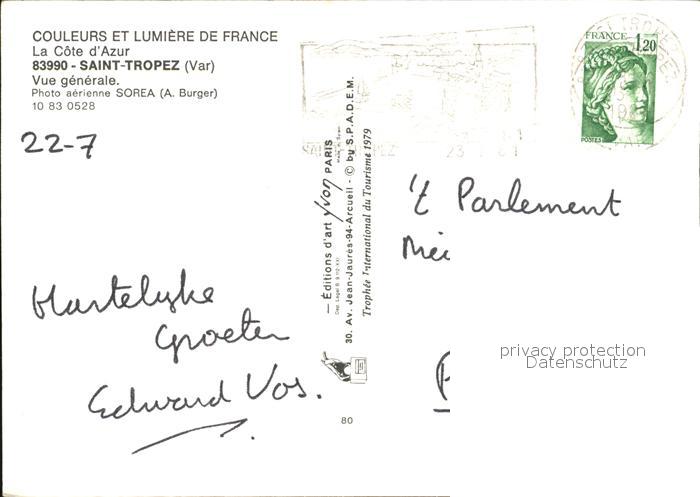 COULEURS ET LUMIÈRE DE FRANCE
La Côte d'Azur
83990 - SAINT-TROPEZ (Var)
Vue générale.
Photo aérienne SOREA (A. Burger)
10 83 0528
22-7
Hartelyke
Groeten
Edward Vos.
— Éditions d'art yvon PARIS
30. Av. Jean-Jaurès-94-Arcueil - © by S.P.A.D.E.M.
Trophée International du Tourisme 1979
80
FRANCE
1,20
POSTES
't Parlement
privacy protection
Datenschutz